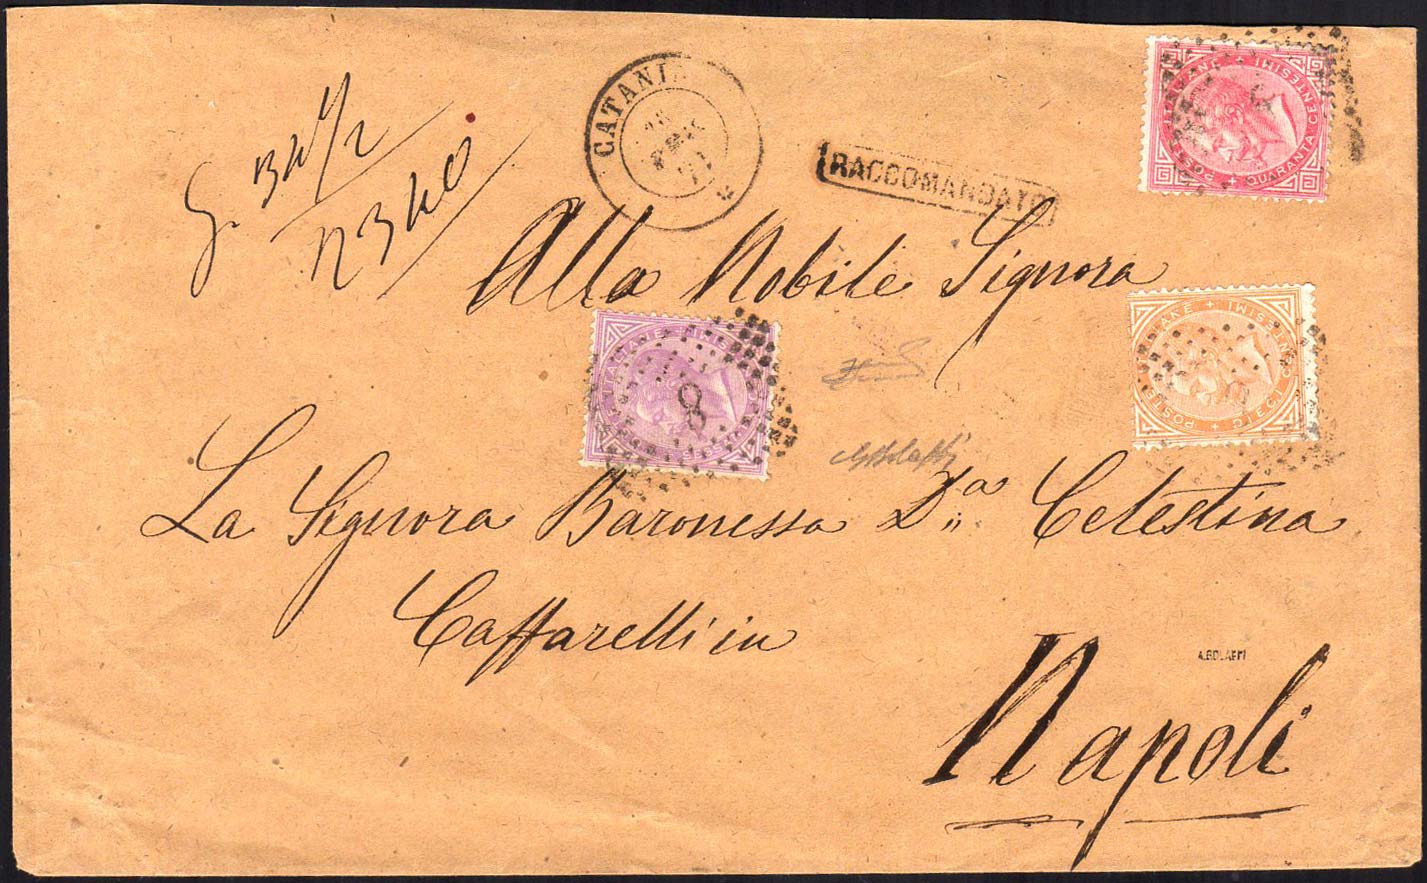 CATANIA
71
RACCOMANDATO
POSTE ITALIANE + QUARANTA CENTESIMI
Alla Nobile Signora
POSTE ITALIANE + DIECI CENTESIMI
ITALIANE
8
La Signora Baronessa D.ª Celestina
Caffarelli in
A.BOLAFFI
Napoli